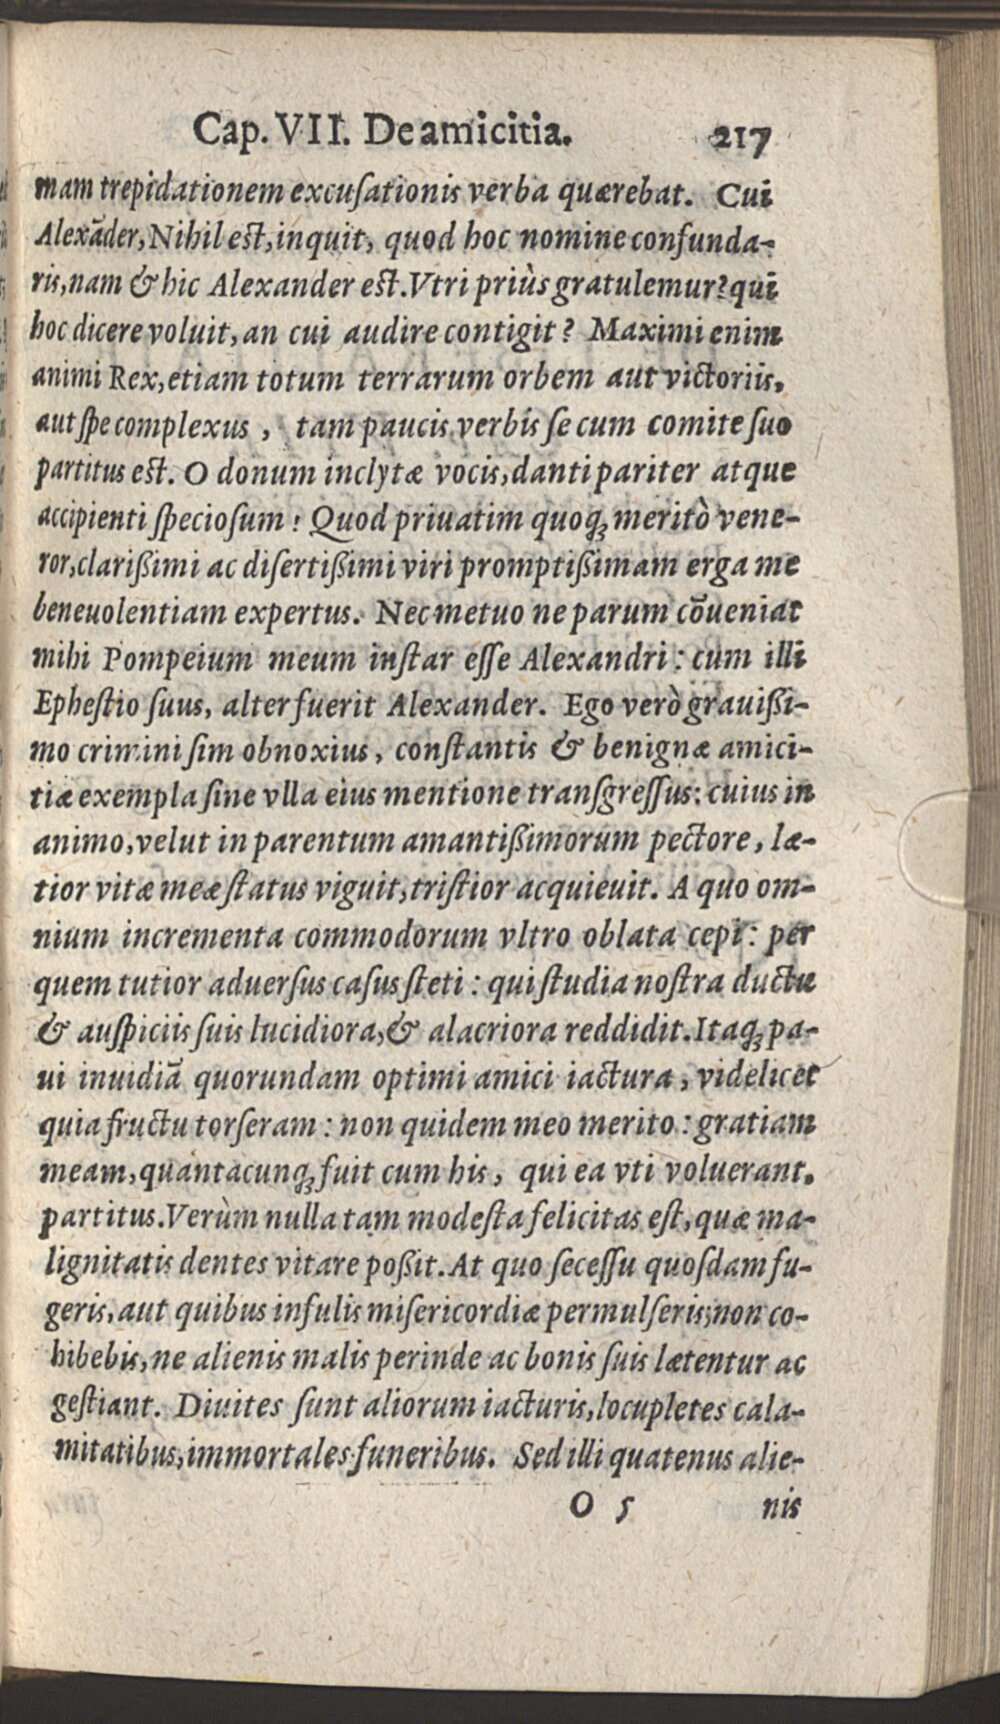 Cap. VII. De amicitia. 217
mam trepidationem excuſationis verba quærebat. Cui
Alexãder, Nihil est, inquit, quod hoc nomine confunda-
ris, nam & hic Alexander est. Vtri priùs gratulemur? qui
hoc dicere voluit, an cui audire contigit? Maximi enim
animi Rex, etiam totum terrarum orbem aut victoriis,
aut ſpe complexus, tam paucis verbis ſe cum comite ſuo
partitus est. O donum inclytæ vocis, danti pariter atque
accipienti ſpecioſum! Quod priuatim quoq; meritò vene-
ror, clarißimi ac diſertißimi viri promptißimam erga me
beneuolentiam expertus. Nec metuo ne parum cõueniat
mihi Pompeium meum inſtar eſſe Alexandri: cum illi
Epheſtio ſuus, alter fuerit Alexander. Ego verò grauißi-
mo crimini ſim obnoxius, conſtantis & benignæ amici-
tiæ exempla ſine vlla eius mentione tranſgreſſus: cuius in
animo, velut in parentum amantißimorum pectore, læ-
tior vitæ meæ ſtatus viguit, triſtior acquieuit. A quo om-
nium incrementa commodorum vltro oblata cepi: per
quem tutior aduerſus caſus ſteti: qui ſtudia noſtra ductu
& auſpiciis ſuis lucidiora, & alacriora reddidit. Itaq; pa-
ui inuidiã quorundam optimi amici iactura, videlicet
quia fructu torſeram: non quidem meo merito: gratiam
meam, quantacunq; fuit cum his, qui ea vti voluerant,
partitus. Verùm nulla tam modeſta felicitas eſt, quæ ma-
lignitatis dentes vitare poßit. At quo ſeceſſu quoſdam fu-
geris, aut quibus infulis miſericordiæ permulſeris, non co-
hibebis, ne alienis malis perinde ac bonis ſuis lætentur ac
geſtiant. Diuites ſunt aliorum iacturis, locupletes cala-
mitatibus, immortales funeribus. Sed illi quatenus alie-
O 5 nis